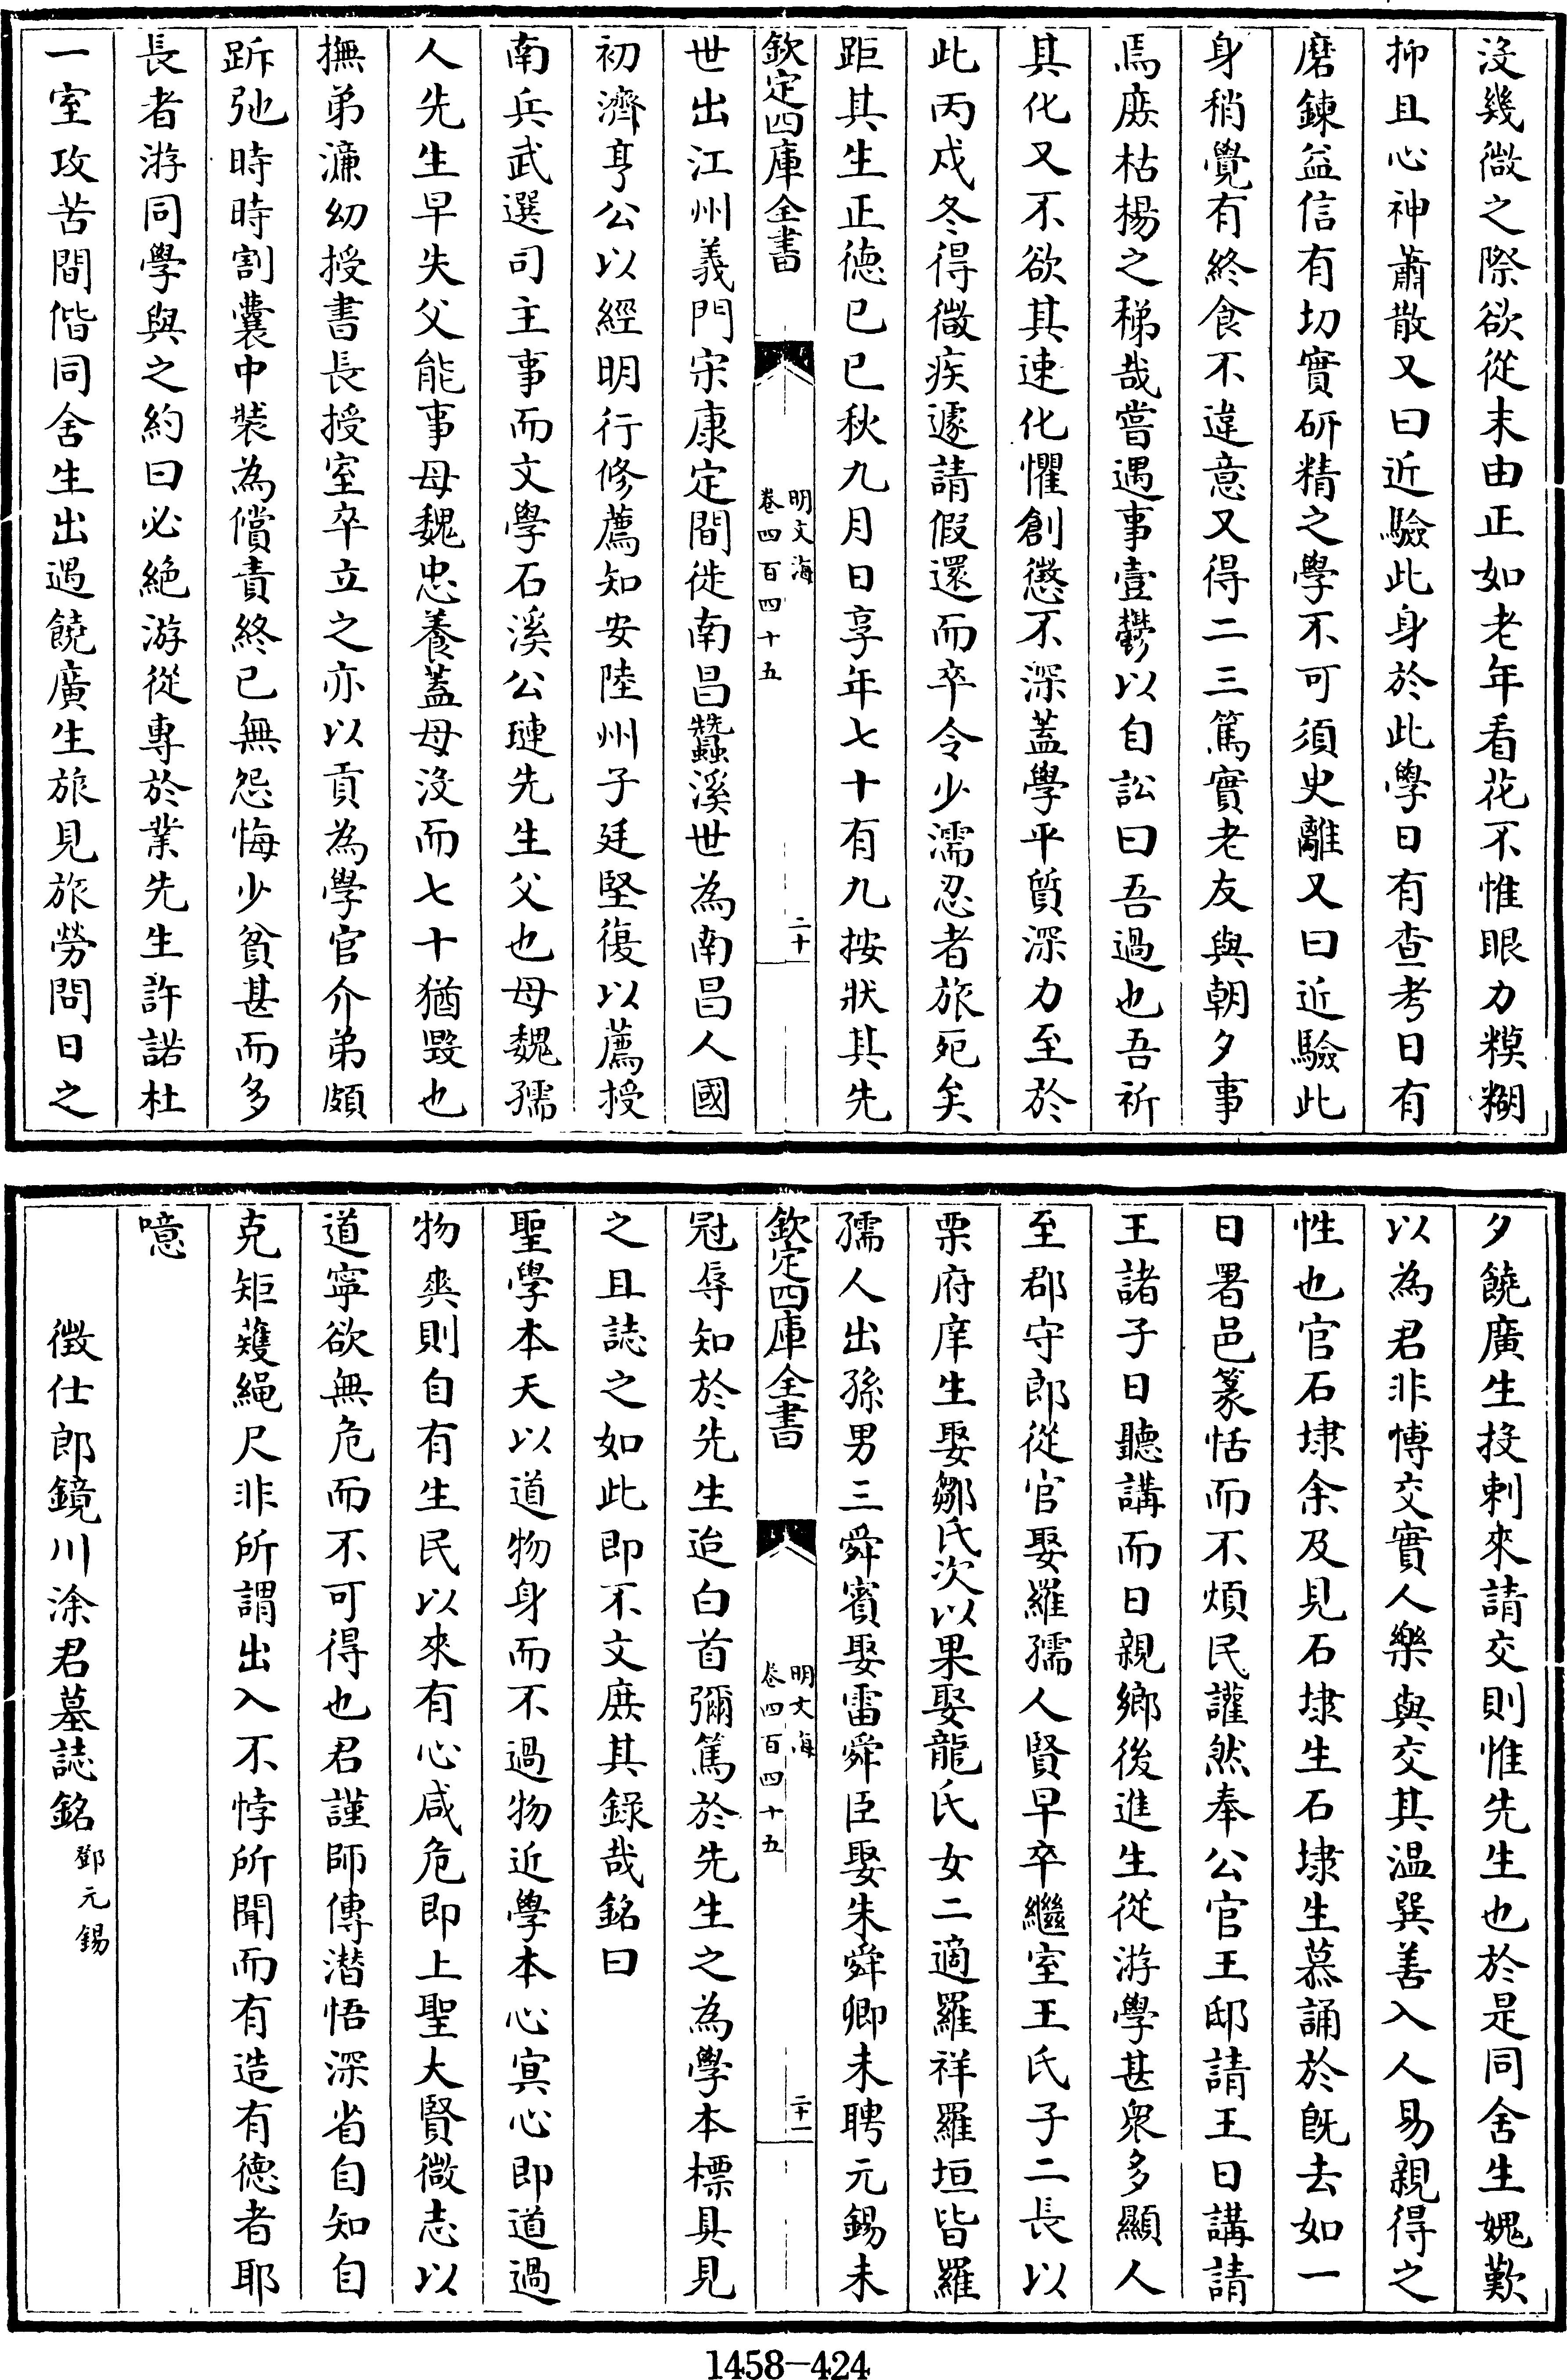 沒幾微之際欲從末由正如老年看花不惟眼力糢糊
抑且心神蕭散又曰近驗此身於此學日有查考日有
磨鍊益信有切實研精之學不可須史離又曰近驗此
身稍覺有終食不違意又得二三篤實老友與朝夕事
焉庶枯楊之稊哉嘗遇事壹鬱以自訟曰吾過也吾祈
其化又不欲其速化懼創懲不深蓋學平質深力至於
此丙戍冬得微疾遽請假還而卒令少濡忍者旅死矣
距其生正德已巳秋九月日享年七十有九按狀其先
欽定四庫全書
明文海
卷四百四十五
二十
世出江州義門宋康定間徙南昌蠶溪世為南昌人國
初濟亨公以經明行修薦知安陸州子廷堅復以薦授
南兵武選司主事而文學石溪公璉先生父也母魏孺
人先生早失父能事母魏忠養蓋母沒而七十猶毀也
撫弟濂幼授書長授室卒立之亦以貢為學官介弟頗
跅弛時時割囊中裝為償責終已無怨悔少貧甚而多
長者游同學與之約曰必絕游從專於業先生許諾杜
一室攻苦間偕同舍生出遇饒廣生旅見旅勞問日之
夕饒廣生投刺來請交則惟先生也於是同舍生媿歎
以為君非愽交實人樂與交其温巽善入人易親得之
性也官石埭余及見石埭生石埭生慕誦於旣去如一
日署邑篆恬而不煩民讙然奉公官王邸請王日講請
王諸子日聽講而日親鄉後進生從游學甚衆多顯人
至郡守郎從官娶羅孺人賢早卒繼室王氏子二長以
栗府庠生娶鄒氏次以果娶龍氏女二適羅祥羅垣皆羅
孺人出孫男三舜賓娶雷舜臣娶朱舜卿未聘元錫未
欽定四庫全書
明文海
卷四百四十五
二十一
冠辱知於先生迨白首彌篤於先生之為學本標具見
之且誌之如此即不文庶其錄哉銘曰
聖學本天以道物身而不過物近學本心㝠心即道過
物爽則自有生民以來有心咸危即上聖大賢微志以
道寧欲無危而不可得也君謹師傳潛悟深省自知自
克矩矱繩尺非所謂出入不悖所聞而有造有德者耶
噫
徵仕郎鏡川涂君墓誌銘 鄧元錫
1458-424